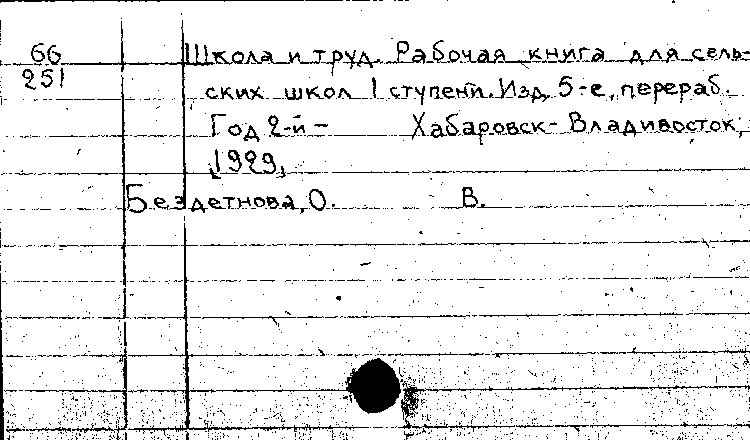 66 Школа и труд. Рабочая книга для сель-
251 ских школ I ступени. Изд. 5-е, перераб.
Год 2-й - Хабаровск-Владивосток,
1929,
Бездетнова, О. В.